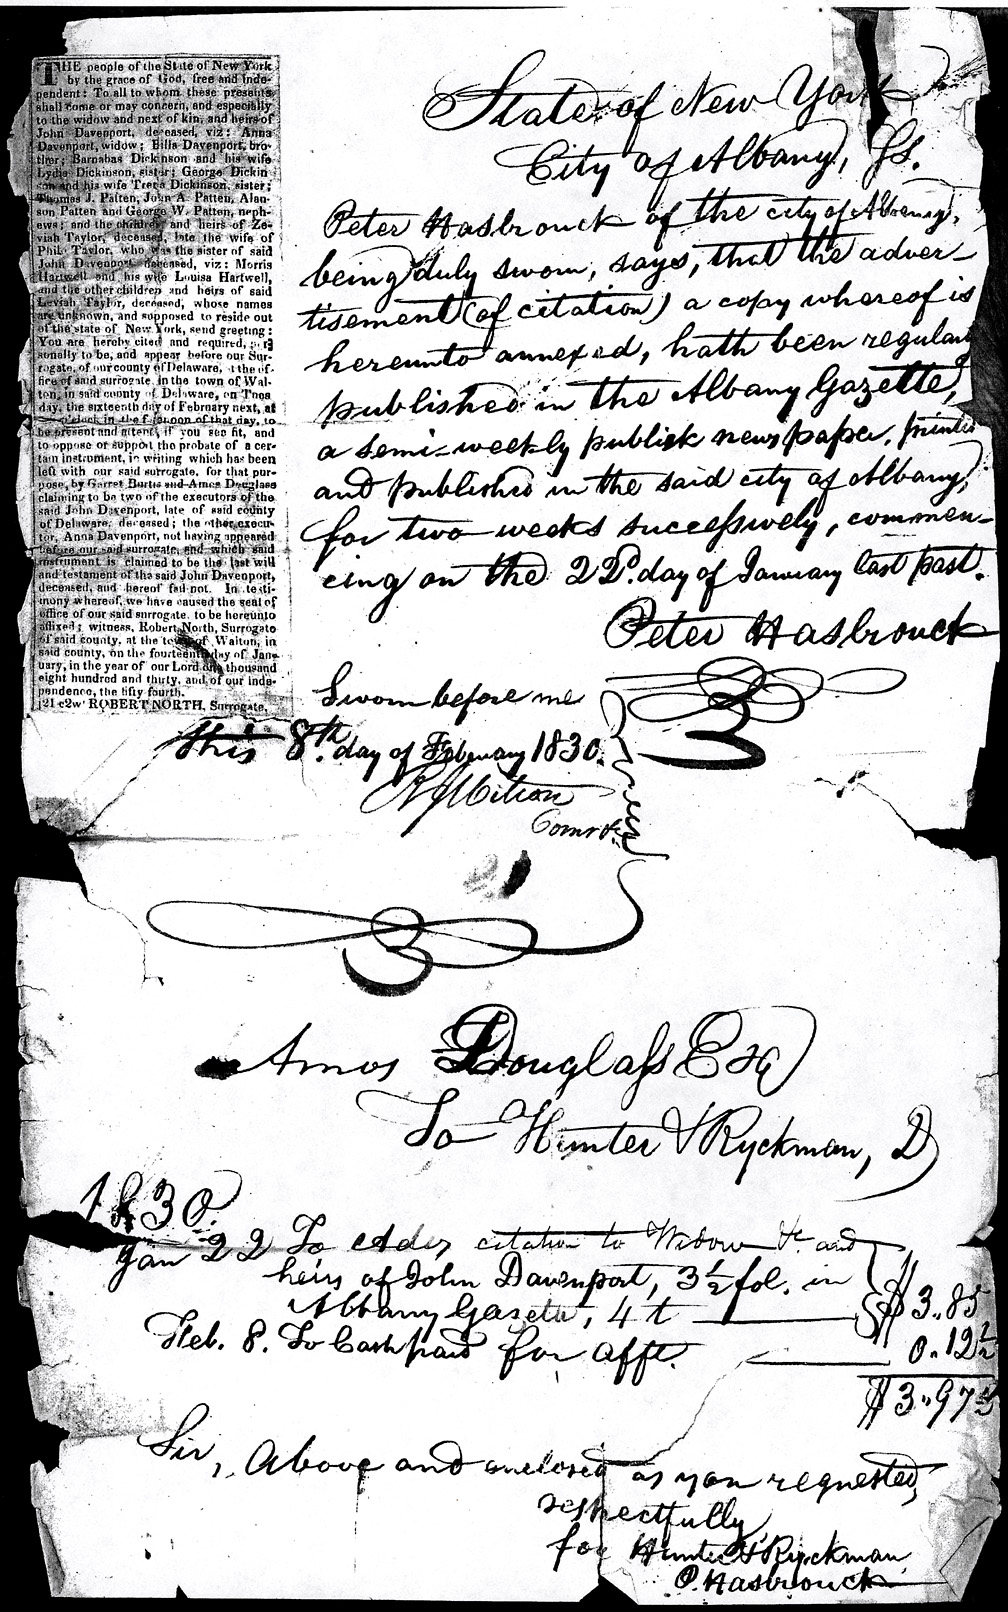 THE people of the State of New York
by the grace of God, free and inde-
pendent: To all to whom these presents
shall come or may concern, and especially
to the widow and next of kin, and heirs of
John Davenport, deceased, viz: Anna
Davenport, widow; Bills Davenport, bro-
ther; Barnabas Dickinson and his wife
Lydia Dickinson, sister; George Dickin
son and his wife Trena Dickinson, sister;
Thomas J. Patten, John A. Patten, Alan-
son Patten and George W. Patten, neph-
ews; and the children and heirs of Ze-
viah Taylor, deceased, late the wife of
Phil. Taylor, who was the sister of said
John Davenport deceased, viz: Morris
Hartwell and his wife Louisa Hartwell,
and the other children and heirs of said
Zeviah Taylor, deceased, whose names
are unknown, and supposed to reside out
of the state of New York, send greeting:
You are hereby cited and required, per
sonally to be, and appear before our Sur-
rogate, of our county of Delaware, at the of-
fice of said surrogate, in the town of Wal-
ton, in said county of Delaware, on Tues
day, the sixteenth day of February next, at
o'clock in the forenoon of that day, to
be present and attent, if you see fit, and
to oppose or support the probate of a cer-
tain instrument, in writing which has been
left with our said surrogate, for that pur-
pose, by Garret Burtis and Amos Douglass
claiming to be two of the executors of the
said John Davenport, late of said county
of Delaware, deceased; the other execu-
tor, Anna Davenport, not having appeared
before our said surrogate, and which said
instrument is claimed to be the last will
and testament of the said John Davenport,
deceased, and hereof fail not. In testi-
mony whereof, we have caused the seal of
office of our said surrogate, to be hereunto
affixed; witness, Robert North, Surrogate
of said county, at the town of Walton, in
said county, on the fourteenth day of Jan-
uary, in the year of our Lord one thousand
eight hundred and thirty, and of our inde-
pendence, the fifty fourth.
j21 c2w ROBERT NORTH, Surrogate.
State of New York
City of Albany, Ss.
Peter Hasbrouck of the city of Albany,
being duly sworn, says, that the adver-
tisement (of citation) a copy whereof is
hereunto annexed, hath been regularly
published in the Albany Gazette,
a semi-weekly publick newspaper, printed
and published in the said city of Albany,
for two weeks successively, commen-
cing on the 22d. day of January last past.
Peter Hasbrouck
Sworn before me
this 8th. day of February 1830.
Comr.
Amos Douglass Esq
To Hunter & Ryckman, Dr
1830.
Jan 22 To Adv. citation to Widow &c. and
heirs of John Davenport, 3½ fol. in
Albany Gazette, 4 t $3.85
Feb. 8. To Cash paid for afft. 0.12½
$3.97½
Sir, Above and enclosed as you requested,
respectfully
for Hunter & Ryckman
P. Hasbrouck